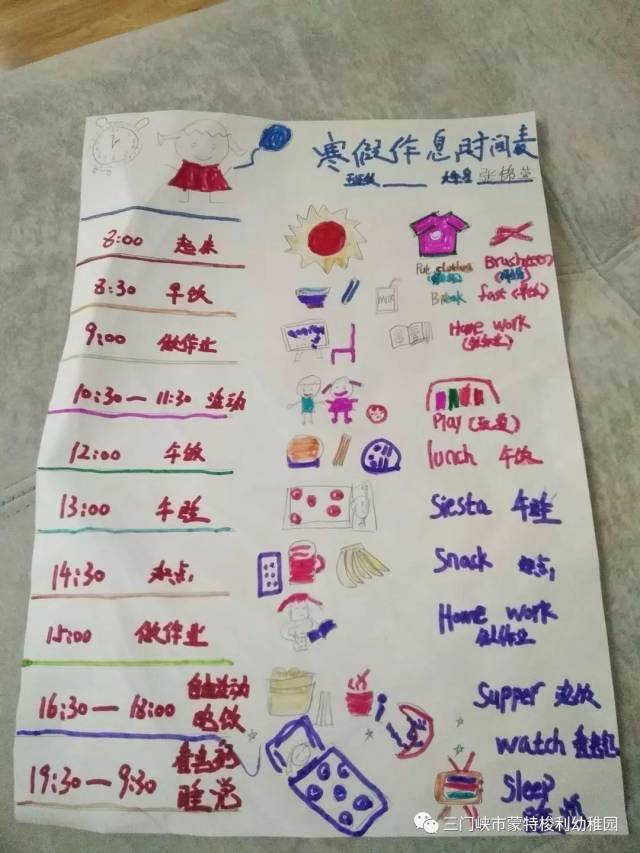 寒假作息时间表
班级____ 姓名
8:00 起床 Put clothes
8:30 早饭 Milk Break fast (早饭)
9:00 做作业 Home work
(做作业)
10:30—11:30 活动
Play (玩耍)
12:00 午饭 lunch 午饭
13:00 午睡 Siesta 午睡
14:30 Snack
15:00 做作业 Home work
做作业
16:30—18:00 自由活动
吃饭 Supper 吃饭
watch
19:30—9:30 看电视
睡觉 Sleep
三门峡市蒙特梭利幼稚园